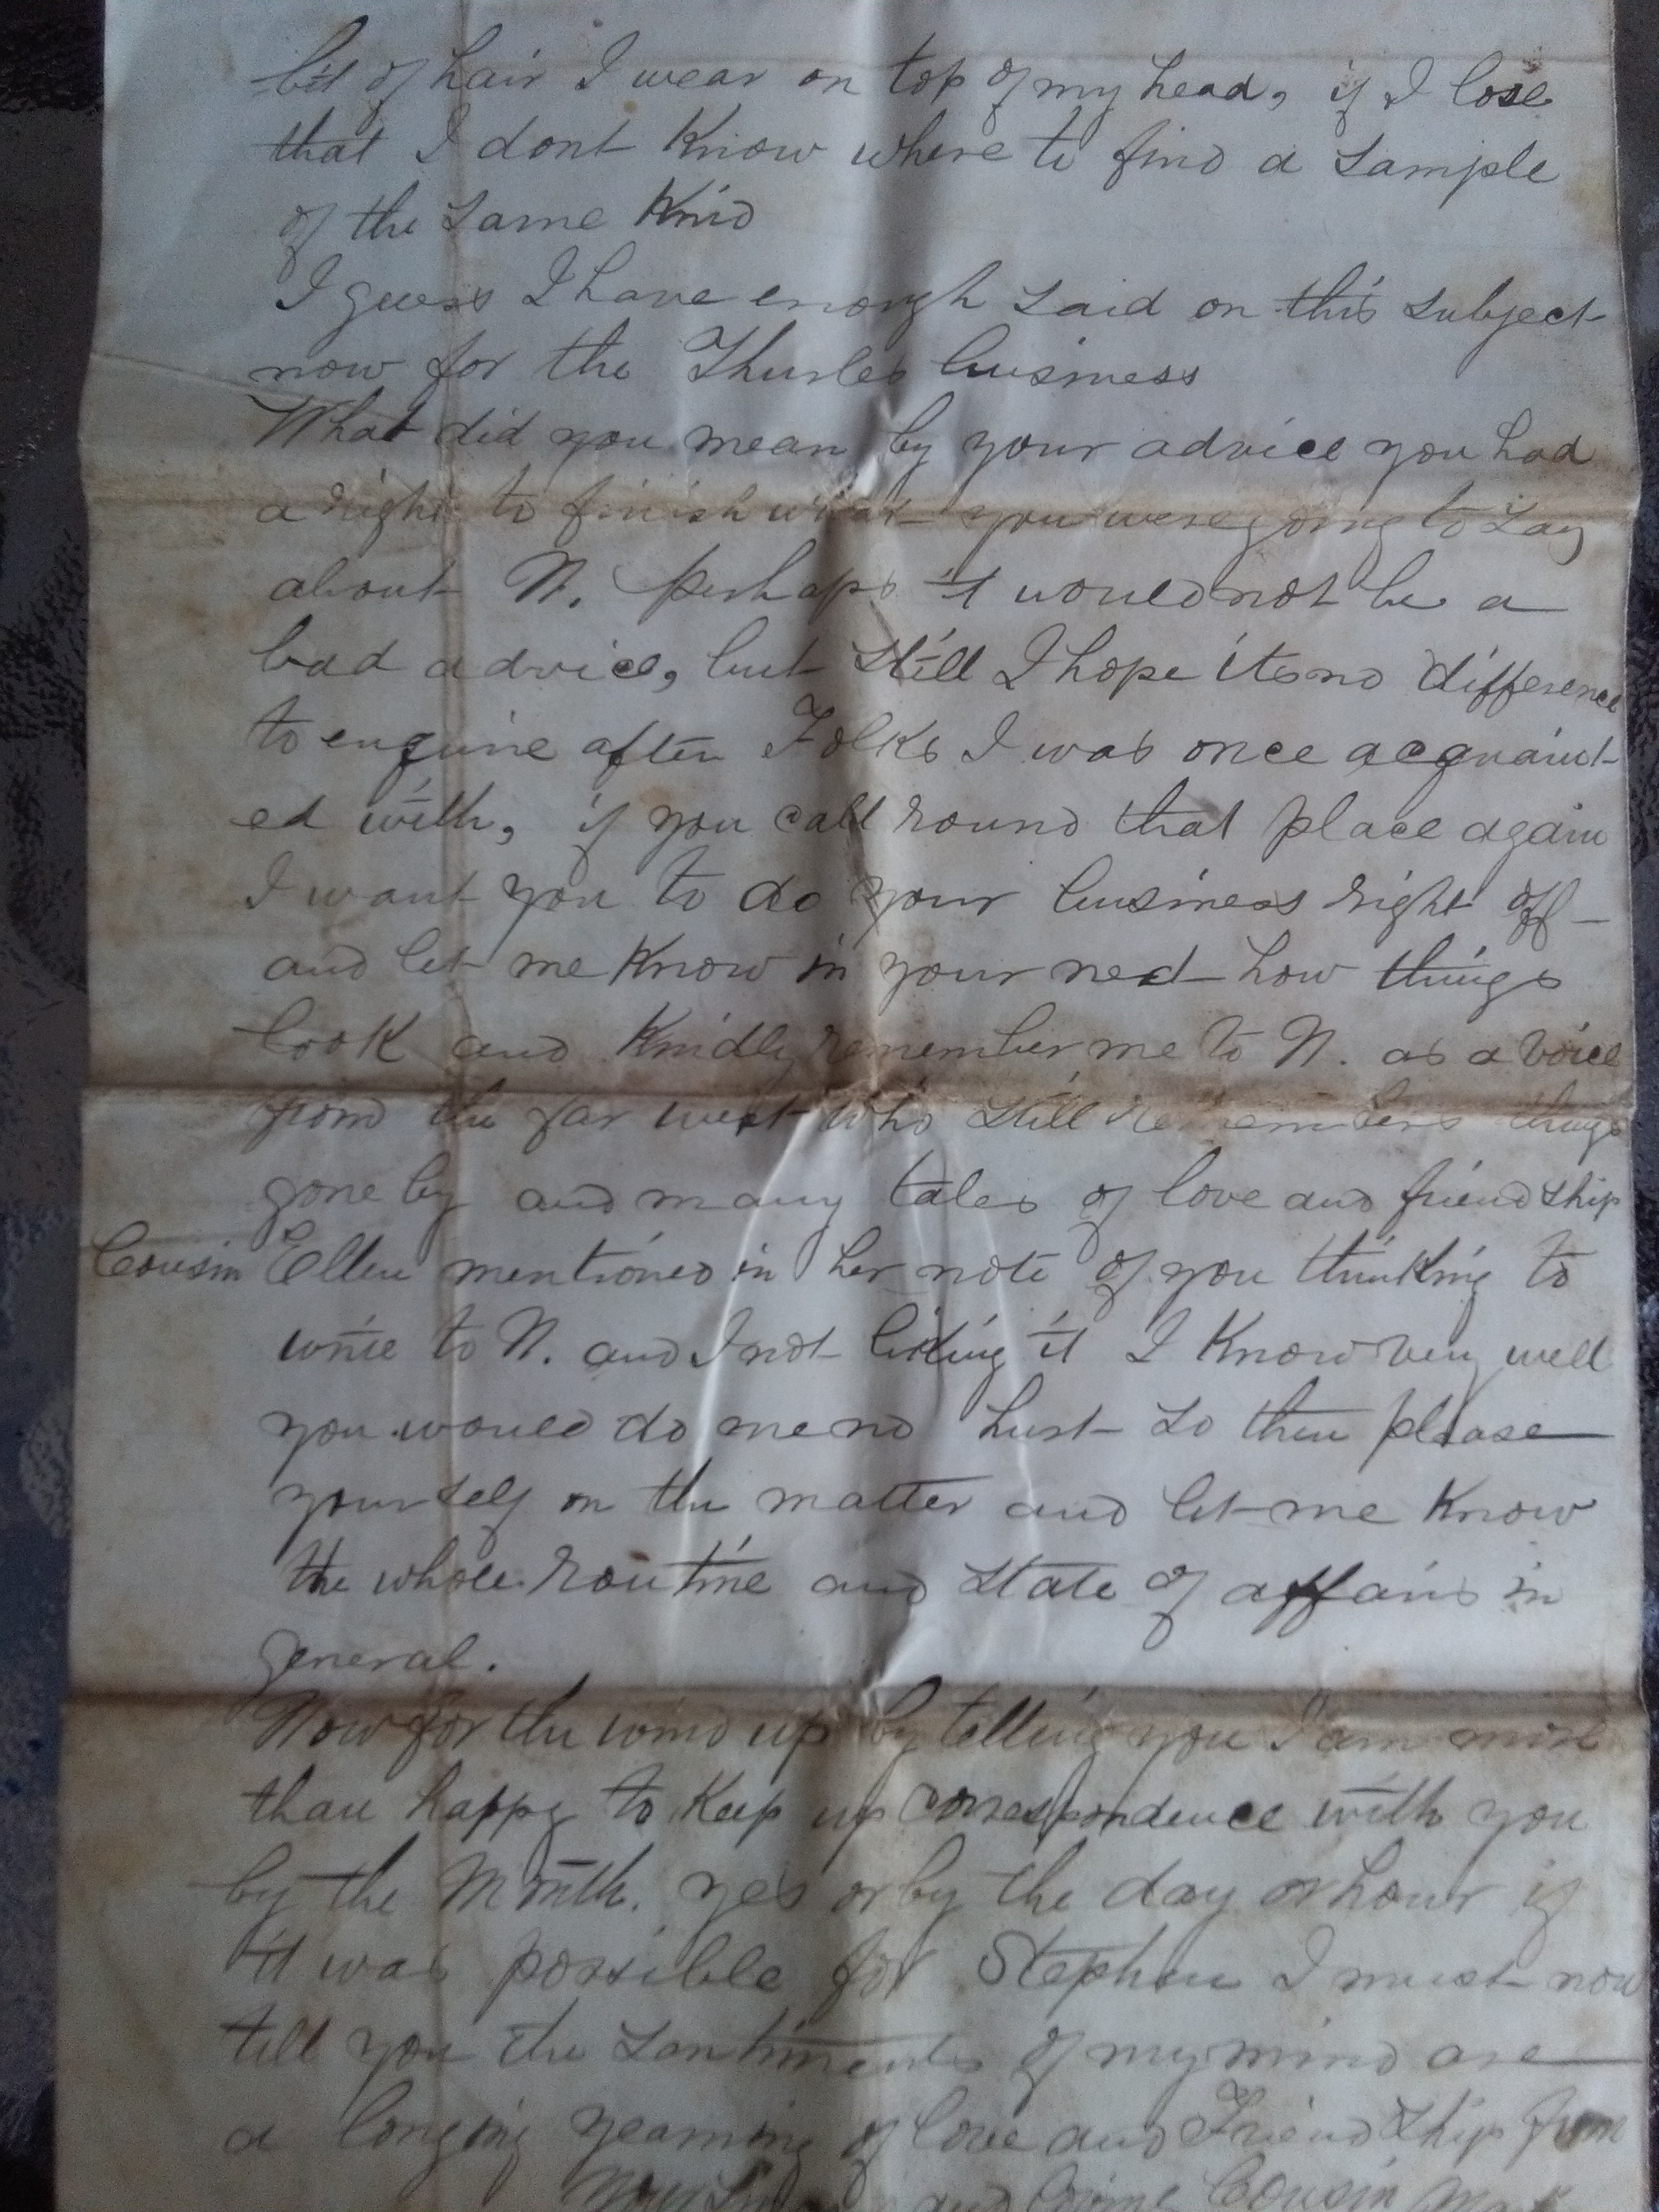 bit of hair I wear on top of my head, if I lose
that I dont Know where to find a sample
of the same Kind
I guess I have enough said on this subject
now for the Thurles business
What did you mean by your advice you had
a right to finish what you were going to say
about N. perhaps it would not be a
bad advice, but still I hope its no difference
to enquire after Folks I was once acquaint-
ed with, if you call round that place again
I want you to do your business right off
and let me Know in your next how things
look and Kindly remember me to N. as a voice
from the far west who still remembers things
gone by and many tales of love and friendship
Cousin Ellen mentioned in her note of you thinking to
write to N. and I not liking it I Know very well
you would do me no hurt so then please
yourself on the matter and let me Know
the whole routine and state of affairs in
general.
Now for the wind up by telling you I am more
than happy to Keep up correspondence with you
by the Month. yes or by the day or hour if
it was possible for Stephen I must now
tell you the sentiments of my mind are
a longing yearning of love and Friendship from
Your and Cousin